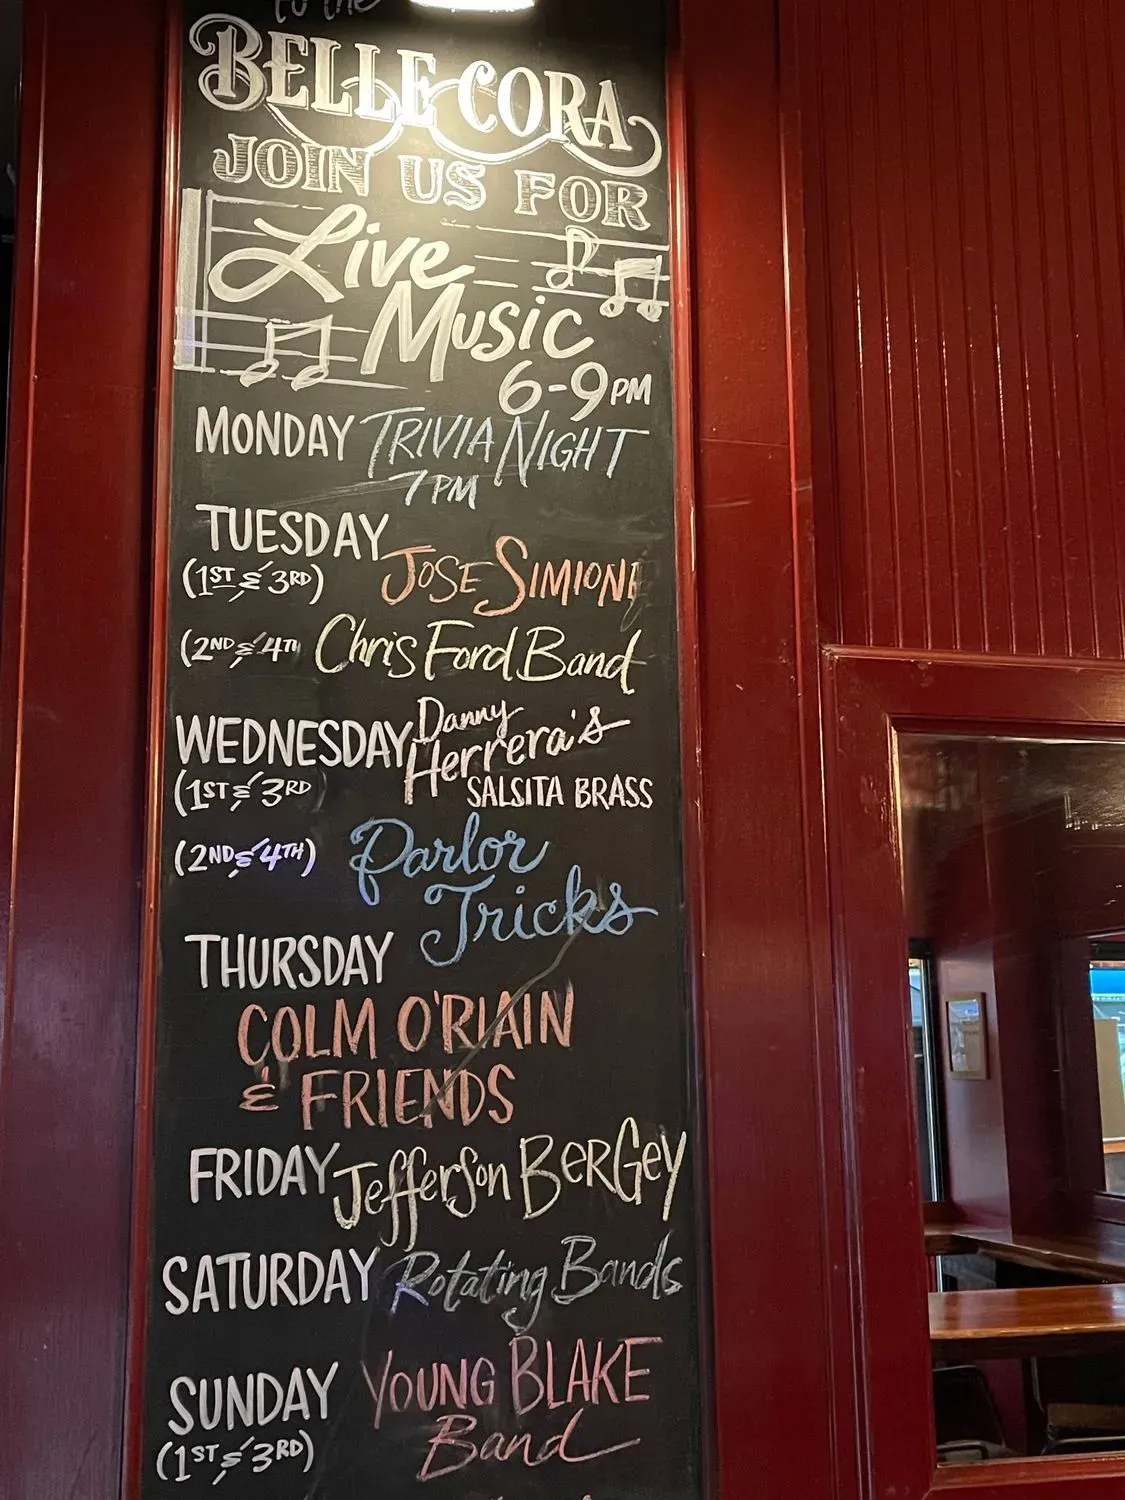 to the
BELLE CORA
JOIN US FOR
Live
Music
6-9PM
MONDAY TRIVIA NIGHT
7PM
TUESDAY
(1ST & 3RD) JOSE SIMIONI
(2ND & 4TH Chris Ford Band
WEDNESDAY Danny
Herrera's
(1ST & 3RD SALSITA BRASS
(2ND & 4TH) Parlor
Tricks
THURSDAY
COLM O'RIAIN
& FRIENDS
FRIDAY Jefferson BERGEY
SATURDAY Rotating Bands
SUNDAY YOUNG BLAKE
(1ST & 3RD) Band